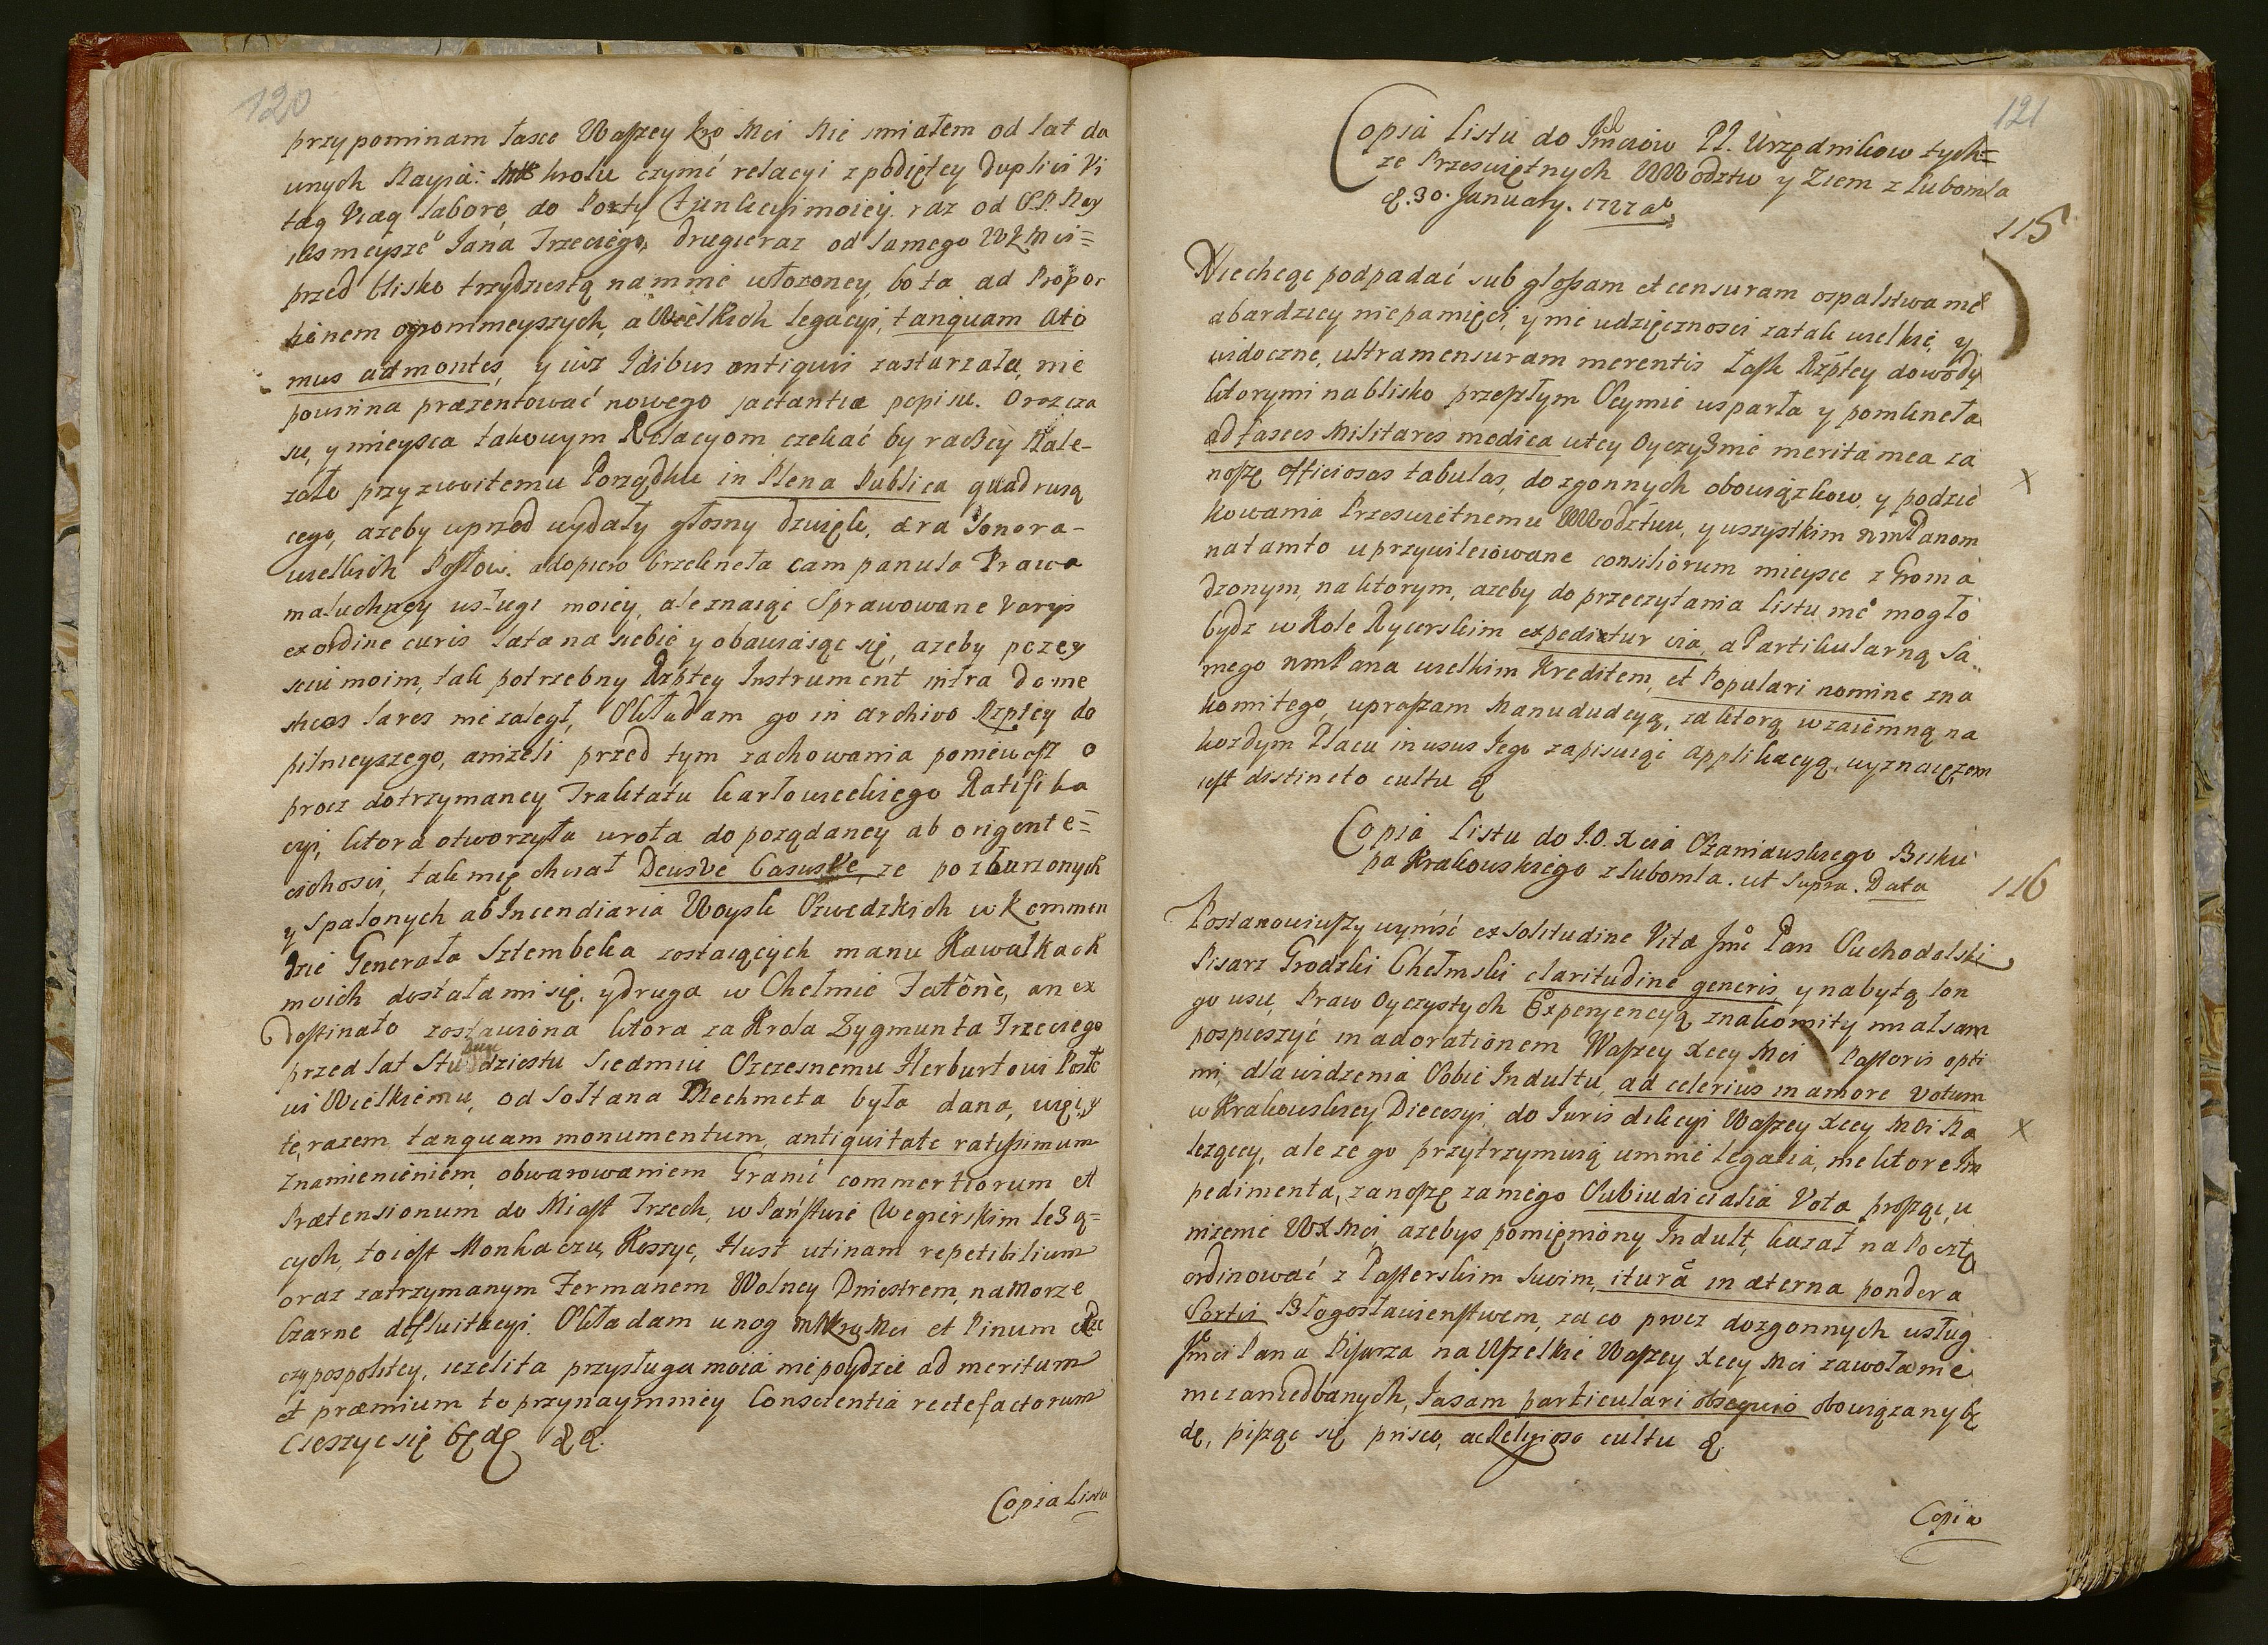 120
przypominam łasce Waszey Kro Mci Nie smiałem od lat da
wnych Nayia: krolu czynić relacyi z podiętey duplici Vi
taq Viaq labore, do Porty funkcyi moiey. raz od SP. Nay
iasnieysze° Jana Trzeciego, drugi raz od samego WKMci=
przed blisko trzydziestą na mnie włozoney, bo ta ad Propor
tionem ogromnieyszych, a Wielkich legacyi, tanquam Ato
mus ad montes, y iuż Idibus antiquis zastarzała, nie
powinna prezentować nowego jactantiæ popisu. Oraz cza
su, y mieysca takowym Relacyom czekać by raczey Nale-
zało przyzwoitemu Porządku in Plena Publica quadruią
cego, azeby uprzod wydały głosny dzwięk, æra Sonora-
wielkich Posłow. a dopiero brzeknęła campanula Prawa
maluchney usługi moiey, ale znaiąc Sprawowane Varijs
ex ordine curis lata na siebie y obawiaiąc się, azeby po zey
sciu moim, tak potrzebny Rzptey Instrument intra dome
sticos lares nie zaległ, Składam go in archivo Rzptey do
pilnieyszego, anizeli przed tym zachowania poniewasz o
procz dotrzymaney Traktatu karłowieckiego Ratifika
cyi, ktora otworzyła wrota do pożądaney ab origente=
cichosci, tak mię chciał Deusve Casusve, ze po zburzonych
y Spalonych ab Incendiaria Woysk Szwedzkich w kommen
dzie Generała Sztembeka zostaiących manu Kawałkach
moich dostała mi się. y druga w Chełmie Fatône, an ex
destinato zostawiona ktora za Krola Zygmunta Trzeciego
przed lat Stu dwu dziestu Siedmiu Szczesnemu Herburtowi Posło
wi Wielkiemu, od Sołtana Mechmeta była dana, więc y
tę razem tanquam monumentum, antiquitate ratissimum
znamienieniem obwarowaniem Granic commertiorum et
Prætensionum do Miast Trzech, w Państwie Węgierskim leżą=
cych, to iest Monkaczu, Koszyc, Hust utinam repetibilium
oraz zatrzymanym Fermanem Wolney Dniestrem, na Morze
Czarne defluitacyi. Składam u nog WKro Mci et Sinum Rze
czypospolitey, iezeli ta przysługa moia nie poydzie ad meritum
et præmium to przynaymniey Conscientia recte factorum
Cieszyc się będę &&.
Copia Listu
121
Copia Listu do Jmciow PP. Urzędnikow tych=
ze Przeswiętnych WWodztw y Ziem z Lubomla
d. 30. January. 1727 a°.
115
Niechcąc podpadać sub glossam et censuram ospalstwa me°
a bardziey niepamięci, y niewdzięcznosci za tak wielkie, y
widoczne, ultra mensuram merentis Łask Rzptey dowody
ktorymi na blisko przeszłym Seymie wsparta y pomknęła
ad fasces Militares modica w tey Oyczyznie merita mea za
noszę officiosas tabulas, dozgonnych obowiązkow, y podzię
kowania Przeswietnemu WWodztwu, y wszystkim wmPanom
na tamto uprzywileiowane consiliorum mieysce zgroma
dzonym, na ktorym, azeby do przeczytania listu me° mogło
bydz w Kole Rycerskim expediatur via, a Partikularną sa
mego wmPana wielkim kreditem, et Populari nomine zna
komitego, upraszam Manududcyą, za ktorą wzaiemną na
kozdym Placu in usus Jego zapisuiąc applikacyą. wyznaię zem
iest distincto cultu &
Copia Listu do J.O. Xcia Szaniawskiego Bisku
pa Krakowskiego z Lubomla. ut Supra. Data
116
Postanowiwszy wyniść ex Solitudine Vitæ Jmć Pan Suchodolski
Pisarz Grodzki Chełmski claritudine generis y nabytą lon
go usu, Praw Oyczystych Experyencyą znakomity miał sam
pospieszyć in adorationem Waszey Xcey Mci Pastoris opti
mi, dla widzenia Sobie Indultu, ad celerius in amore votum
w Krakowskiey Diecesyi, do Jurisdikcyi Waszey Xcey Mci Na
lezącey, ale ze go przytrzymuią u mnie legalia, niektore Im
pedimenta, zanoszę za niego Subiudicialia Vota, prosząc, u
nizenie WXMci, azebys pomięniony Indult, kazał na Pocztę
ordinować z Pasterskim Swoim, iturâ in æterna pondera
Sortis Błogosławienstwem, za co procz dozgonnych usług
Jmci Pana Pisarza na Wszelkie Waszey Xcey Mci zawołanie
nie zaniedbanych, Ja sam particulari obsequio obowiązany bę
dę, pisząc się prisco, ac Religioso cultu &
Copia